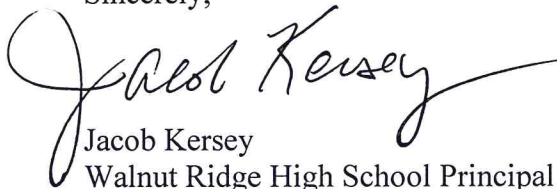 Sincerely,
Jacob Kersey
Jacob Kersey
Walnut Ridge High School Principal